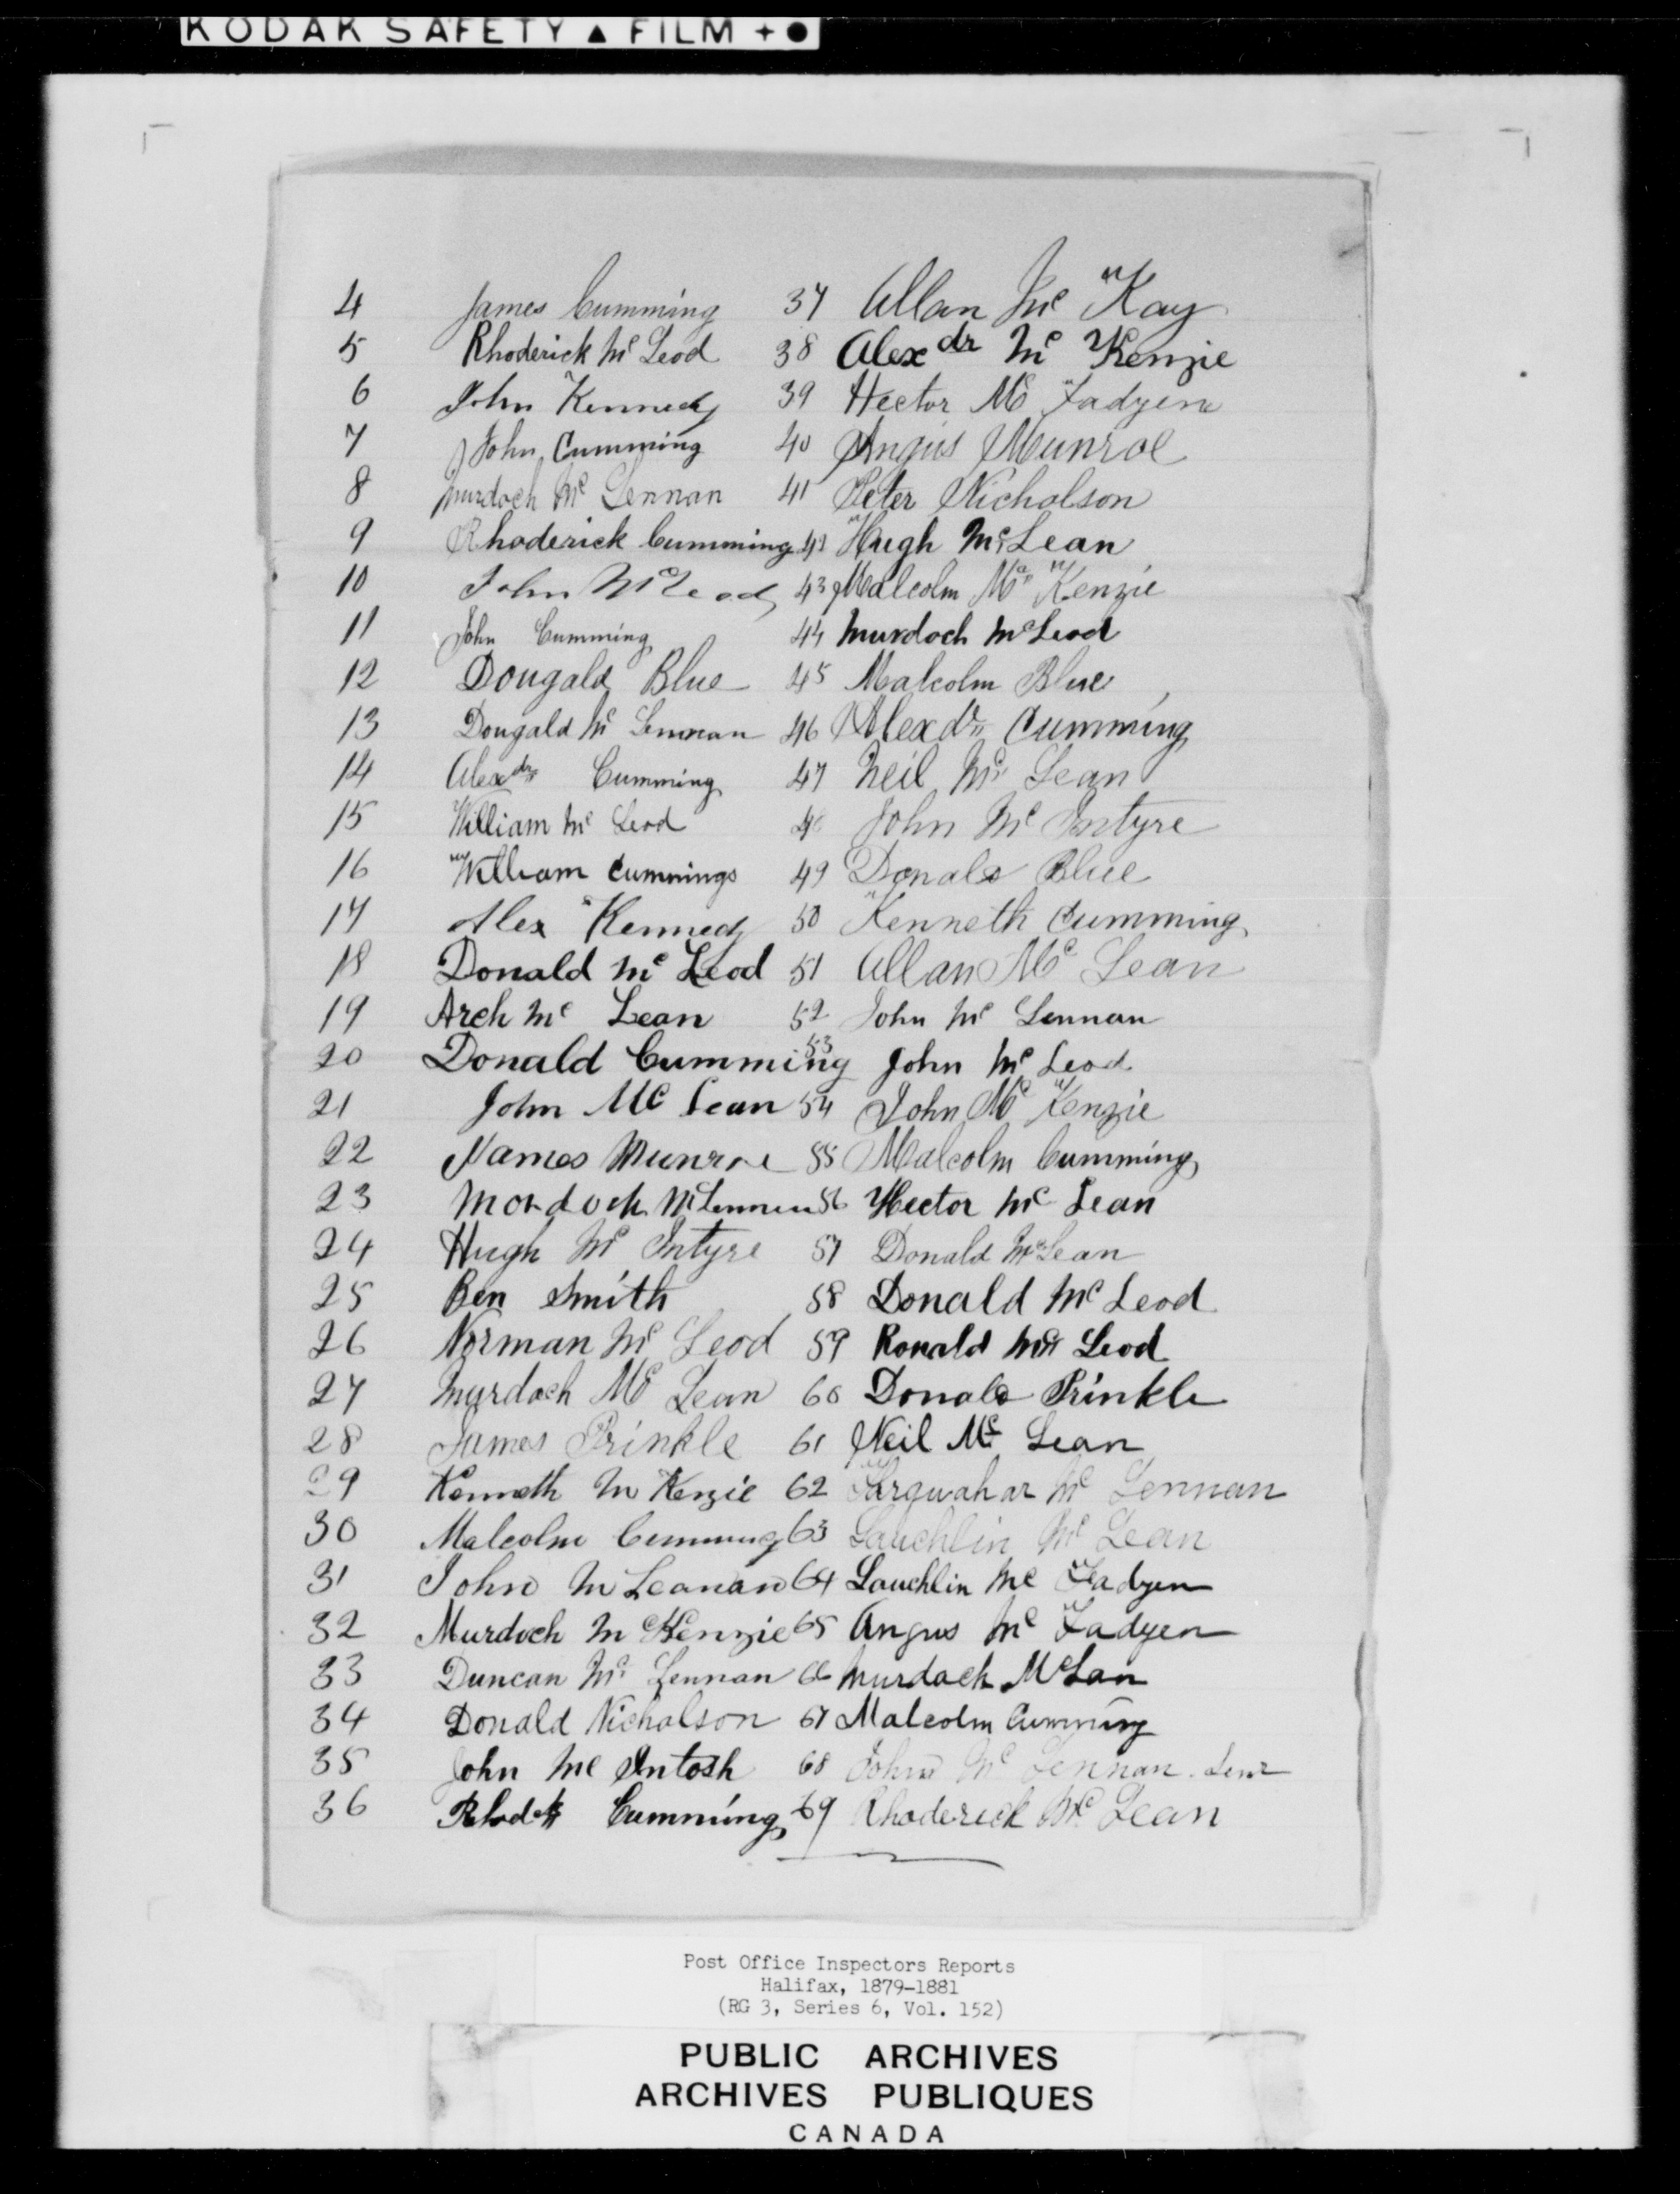 KODAK SAFETY ▲ FILM + ●
4 James Cumming 37 Allan Mc Kay
5 Rhoderick Mc Leod 38 Alexdr Mc Kenzie
6 John Kennedy 39 Hector Mc Fadyen
7 John Cumming 40 Angus Munroe
8 Murdoch Mc Lennan 41 Peter Nicholson
9 Rhoderick Cumming 42 Hugh McLean
10 John McLeod 43 Malcolm Mc Kenzie
11 John Cumming 44 Murdoch McLeod
12 Dougald Blue 45 Malcolm Blue
13 Dougald Mc Lennan 46 Alexdr Cumming
14 Alexdr Cumming 47 Neil Mc Lean
15 William Mc Leod 48 John Mc Intyre
16 William Cummings 49 Donald Blue
17 Alex Kennedy 50 Kenneth Cumming
18 Donald Mc Leod 51 Allan Mc Lean
19 Arch Mc Lean 52 John Mc Lennan
20 Donald Cumming 53 John Mc Leod
21 John Mc Lean 54 John Mc Kenzie
22 James Munroe 55 Malcolm Cumming
23 Mordoch McLennen 56 Hector Mc Lean
24 Hugh Mc Intyre 57 Donald McLean
25 Ben Smith 58 Donald Mc Leod
26 Norman Mc Leod 59 Ronald Mc Leod
27 Murdoch Mc Lean 60 Donald Prinkle
28 James Prinkle 61 Neil Mc Lean
29 Kenneth Mc Kenzie 62 Farquahar Mc Lennan
30 Malcolm Cumming 63 Lauchlin Mc Lean
31 John Mc Leanan 64 Lauchlin Mc Fadyen
32 Murdoch Mc Kenzie 65 Angus Mc Fadyen
33 Duncan Mc Lennan 66 Murdoch McLan
34 Donald Nicholson 67 Malcolm Cumming
35 John Mc Intosh 68 John Mc Lennan
36 Rhodk Cumming 69 Rhoderick Mc Lean
Post Office Inspectors Reports
Halifax, 1879-1881
(RG 3, Series 6, Vol. 152)
PUBLIC ARCHIVES
ARCHIVES PUBLIQUES
CANADA